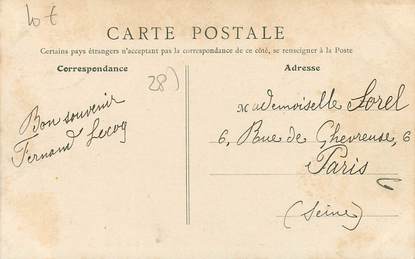 10 €
CARTE POSTALE
Certains pays étrangers n'acceptant pas la correspondance de ce côté, se renseigner à la Poste
Correspondance
Adresse
28)
Bon souvenir
Fernand Lecoq
Mademoiselle Sorel
6, Rue de Chevreuse, 6
Paris
(Seine)